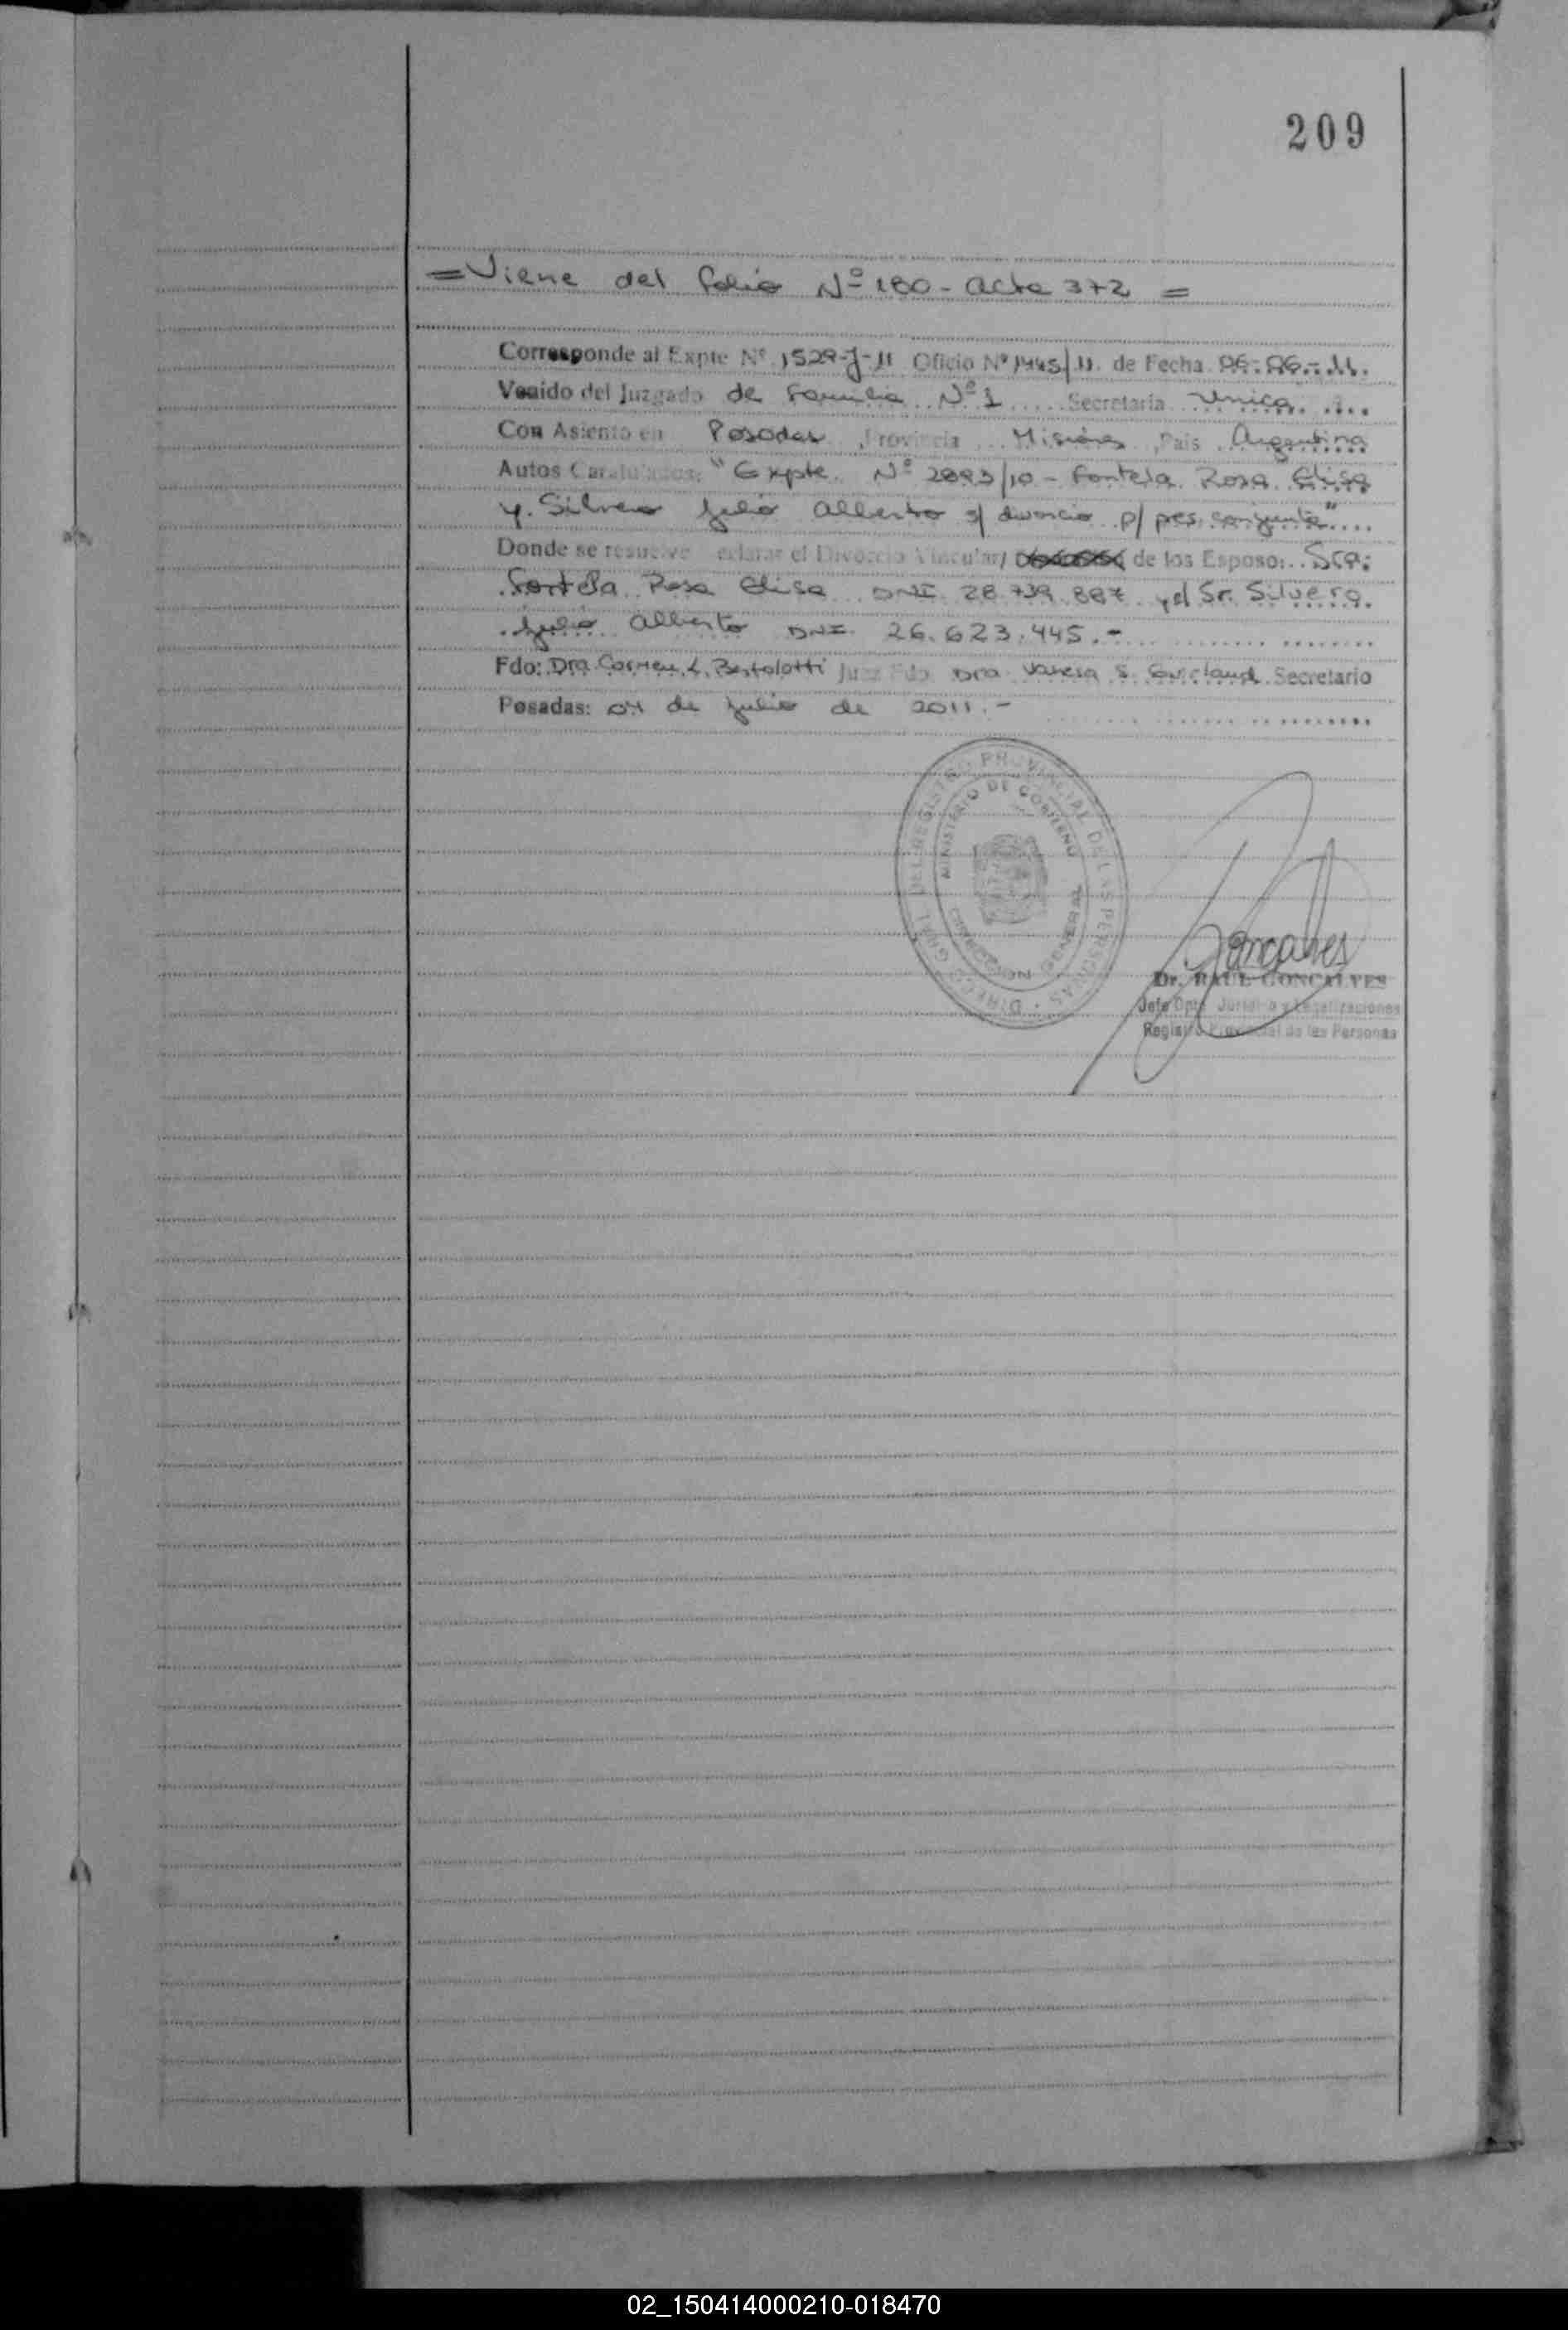 209
= Viene del folio Nº 180 - acta 372 =
Corresponde al Expte Nº 1529-J-11 Oficio Nº 1445/11 de Fecha 06-06-11.
Venido del Juzgado de Familia Nº 1 Secretaria Unica
Con Asiento en Posadas, Provincia Misiones, Pais Argentina
Autos Caratulados: "Expte. Nº 2893/10 - Fontela Rosa Elisa
y Silvero Julio Alberto s/ divorcio p/ pres. conjunta"
Donde se resuelve declarar el Divorcio Vincular/ de los Esposo: Sra:
Fontela Rosa Elisa DNI 28.739.887 y el Sr. Silvero
Julio Alberto DNI 26.623.445.-
Fdo: Dra. Carmen L. Bertolotti Juez Fdo Dra Vanesa S. Secretario
Posadas: 04 de Julio de 2011.-
DIRECC. GRAL. DEL REGISTRO PROVINCIAL DE LAS PERSONAS
MINISTERIO DE GOBIERNO
DIRECCION GENERAL
Goncalves
Dr. RAUL GONCALVES
Jefe Dpto. Juridico y Legalizaciones
Registro Provincial de las Personas
02_150414000210-018470